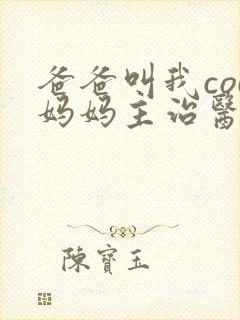 爸爸叫我co
妈妈主治醫
陳寶玉